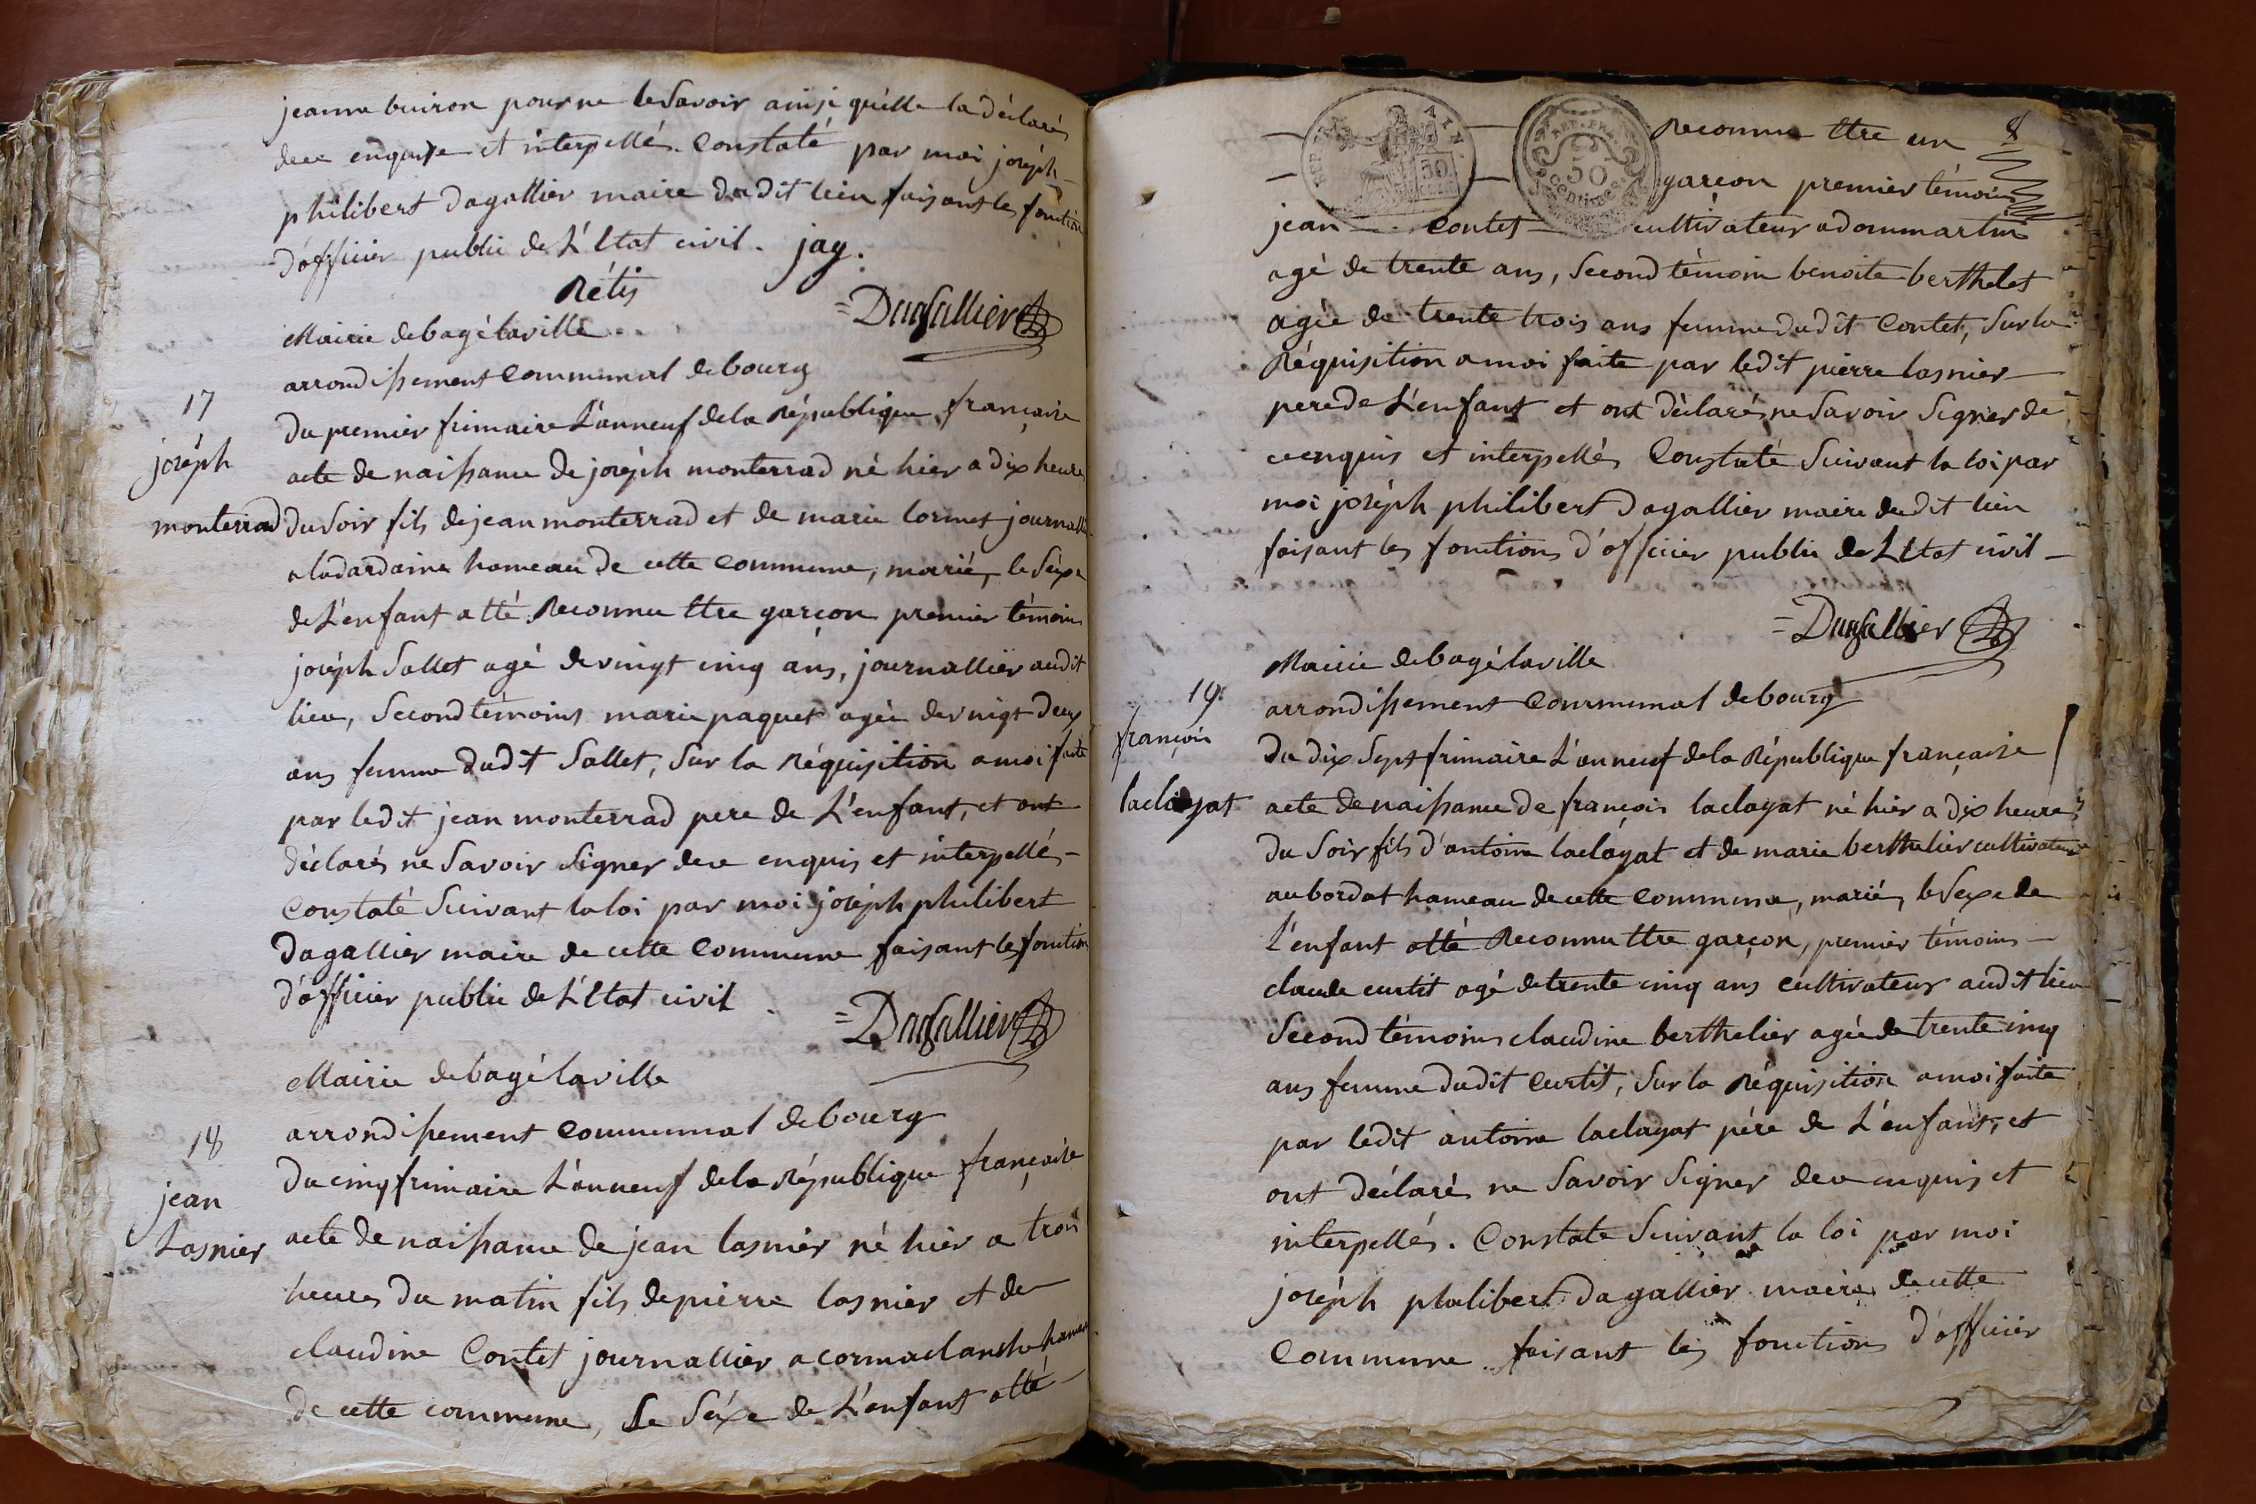 jeanne buiron pour ne le Savoir ainsi quelle la déclarés
dece enquise et interpellés. Constaté par moi joséph
philibert dagallier maire du dit lieu faisant les fonction
d'officier public de L'Etat civil. jay.
Rétis
=Dagallier
Mairie debagé laville
arrondissement Communal de bourg
17
joséph
monterrad
Du premier frimaire L'anneuf dela République française
acte de naissance de joséph monterrad né hier a dix heures
du Soir fils de jean monterrad et de marie lormet journallier
a la dardaine hameau de cette Commune, mariés, le Séxe
de L'enfant a été Reconnu Etre garçon premier témoins
joséph Sallet agé de vingt cinq ans, journallier audit
lieu, Second témoins marie paquet agée de vingt deux
ans femme dudit Sallet, Sur la Réquisition a moi faite
par ledit jean monterrad pere de L'enfant, et ont
déclarés ne Savoir Signer dece enquis et interpellés
Constaté Suivant la loi par moi joséph philibert
Dagallier maire de cette Commune faisant les fonction
d'officier public de L'Etat civil
=Dagallier
Mairie debagé laville
arrondissement Communal de bourg
18
jean
Lasnier
Du cinq frimaire L'anneuf dela République française
acte de naissance de jean lasnier né hier a trois
heures du matin fils de pierre lasnier et de
claudine Contet journallier a cormaclanche hameau
de cette commune, Le Séxe de L'enfant a été
8
Reconnu Etre un
garçon premier témoins
AIN.
50
RÉP. FRA.
50
CENTIMES
jean Contet cultivateur a dommartin
agé de trente ans, Second témoin benoite berthelet
agée de trente trois ans femme dudit Contet, Sur la
Réquisition a moi faite par ledit pierre lasnier
pere de L'enfant et ont déclarés ne Savoir Signer de
ce enquis et interpellés Constaté Suivant la loi par
moi joséph philibert Dagallier maire dudit lieu
faisant les fonctions d'officier public de L'Etat civil
=Dagallier
Mairie debagé laville
arrondissement Communal de bourg
19.
françois
laclayat
Du dix Sept frimaire L'anneuf dela République française
acte de naissance de françois laclayat né hier a dix heures
du Soir fils d'antoine laclayat et de marie berthelier cultivateur
au bordat hameau de cette Commune, mariés, le Sexe de
L'enfant a été Reconnu Etre garçon, premier témoins
claude curtit agé de trente cinq ans cultivateur audit lieu
Second témoins claudine berthelier agée de trente cinq
ans femme dudit Curtit, Sur la Réquisition a moi faite
par ledit antoine laclayat pére de L'enfant, et
ont déclarés ne Savoir Signer dece enquis et
interpellés. Constate Suivant la loi par moi
joséph philibert Dagallier maire de cette
Commune faisant les fonctions d'officier